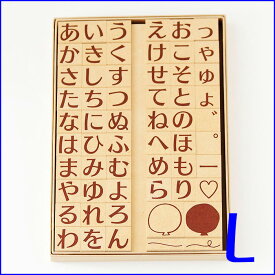 あいう
かきく
さしす
たちつ
なにぬ
はひふ
まみむ
やゆよ
るれろ
わをん
えおっ
けこゃ
せそゅ
てとょ
ねの゛
へほ゜
めもー
らり♡
L